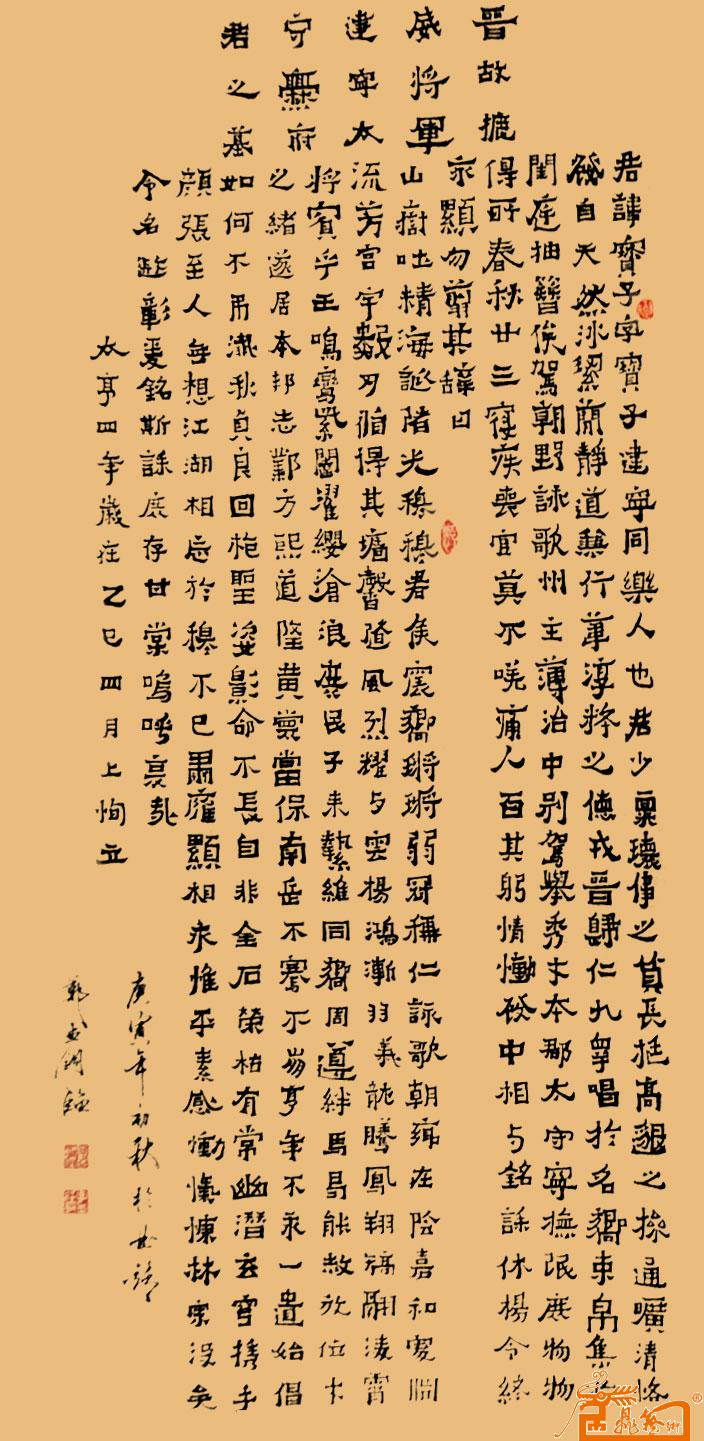 晉故振
威將軍
建寧太
守爨府
君之墓
君諱寶子字寶子建寧同樂人也君少稟瓌偉之質長挺高邈之操通曠清恪
發自天然冰潔簡靜道兼行葦淳粹之德戎晉歸仁九皋唱於名嚮束帛集於
閨庭抽簪俟駕朝野詠歌州主薄治中別駕舉秀才本郡太守寧撫氓庶物物
得所春秋廿三寢疾喪官莫不嗟痛人百其躬情慟發中相与銘誄休楊令終
永顯勿翦其辭曰
山嶽吐精海誕陼光穆穆君侯震嚮鏘鏘弱冠稱仁詠歌朝鄉在陰嘉和處淵
流芳宮宇數仞循得其墻馨隨風烈耀与雲揚鴻漸羽儀龍騰鳳翔矯翮凌霄
將賓乎王鳴鸞紫闥濯纓滄浪庶民子來縶維同嚮周遵絆馬曷能赦放位才
之緒遂居本邦志鄴方熙道隆黃裳當保南岳不騫不崩享年不永一匱始倡
如何不弔殲我貞良回抱聖姿影命不長自非金石榮枯有常幽潛玄穹攜手
顏張至人無想江湖相忘於穆不已肅雍顯相永惟平素感慟愾慷林宗沒矣
令名遐彰爰銘斯誄庶存甘棠嗚呼哀哉
太亨四年歲在乙巳四月上恂立
庚寅年初秋於
臨